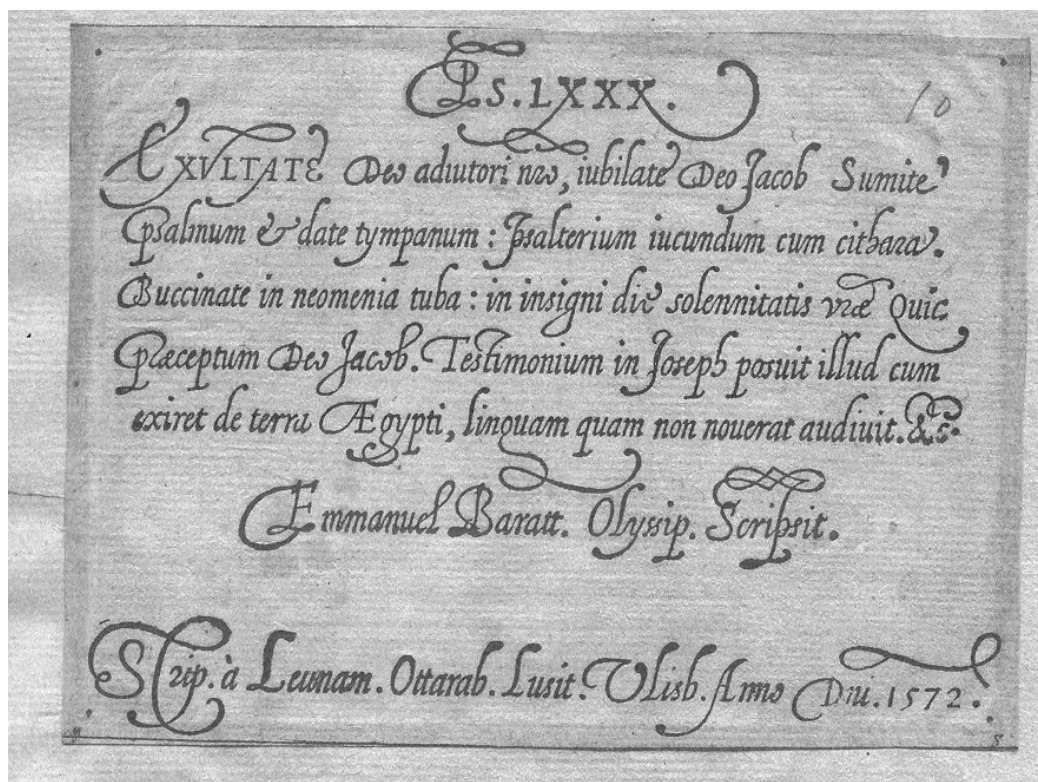 Ps. LXXX.
10
EXVLTATE Deo adiutori nro, iubilate Deo Jacob Sumite
psalmum & date tympanum : Psalterium iucundum cum cithara.
Buccinate in neomenia tuba : in insigni die solennitatis vræ Quic
præceptum Deo Jacob. Testimonium in Joseph posuit illud cum
exiret de terra Ægypti, linguam quam non nouerat audiuit. &c.
Emmanuel Baratt. Olyssip. Scripsit.
Scrip. à Leunam. Ottarab. Lusit. Vlisb. Anno Dni. 1572.